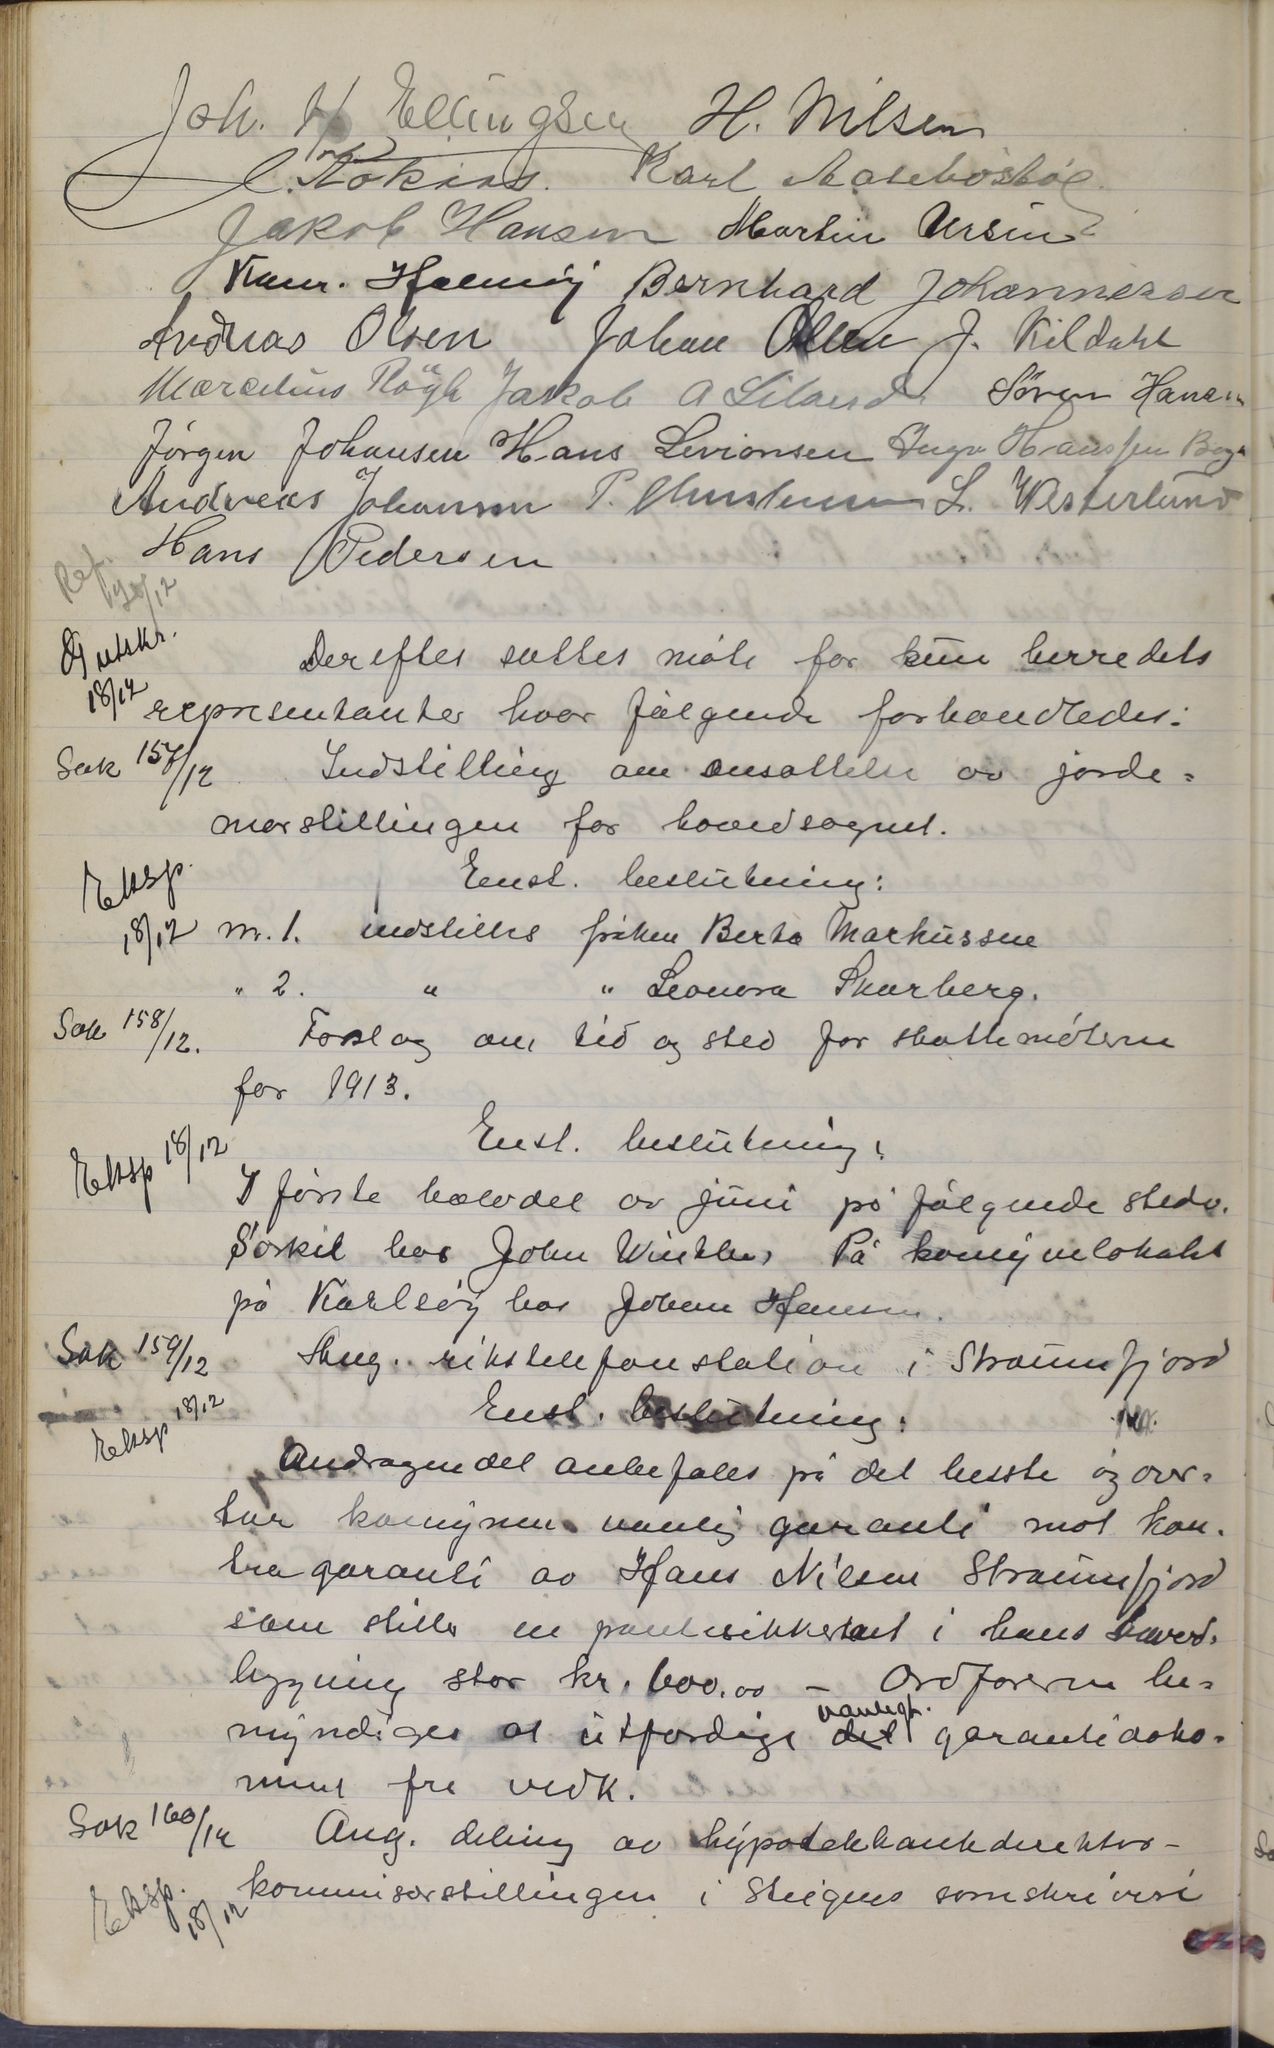 Joh. H Ellingsen H. Nilsen
Karl
Jakob Hansen Martin Ursin
Bernhard Johannessen
Andreas Olsen Johan Olsen J. Kildahl
Marselius Røgh Jakob A Siland Søren Hansen
Jörgen Johansen Hans Sevionsen Hanssen
Andreas Johansen P. Christensen L. Westerlund
Hans Pedersen
Ref.
Og utskr. Derefter sattes møte for kun herredets
18/12 representanter hvor følgende forhandledes:
Sak 157/12 Indstilling om ansættelse av jorde-
morstillingen for hovedsognet.
Eksp. Enst. beslutning:
18/12 nr. 1. indstilles frøken Berta Markussen
" 2. " " Leonora Skarberg.
Sak 158/12. Forslag om tid og sted for skattemøterne
for 1913.
Eksp 18/12 Enst. beslutning:
I første halvdel av juni på følgende steder.
Sørskil hos John Winther På komunelokalet
på Karlsøy hos Johan Hansen.
Sak 159/12 Ang. rikstelefonstation i Straumfjord
Eksp 18/12 Enst. beslutning:
Andragendet anbefales på det beste og over-
tar komunen vanlig garanti mot kon-
tragaranti av Hans Nilsen Straumfjord
som stiller en pantesikkerhet i hans hoved-
bygning stor kr. 600.00 – Ordføreren be-
myndiges at utfærdige det vanlige garantidoko-
ment fra vedk.
Sak 160/12 Ang. deling av hypotekbankdirektør-
Eksp. 18/12 kommisærstillingen i Steigens sorenskriveri